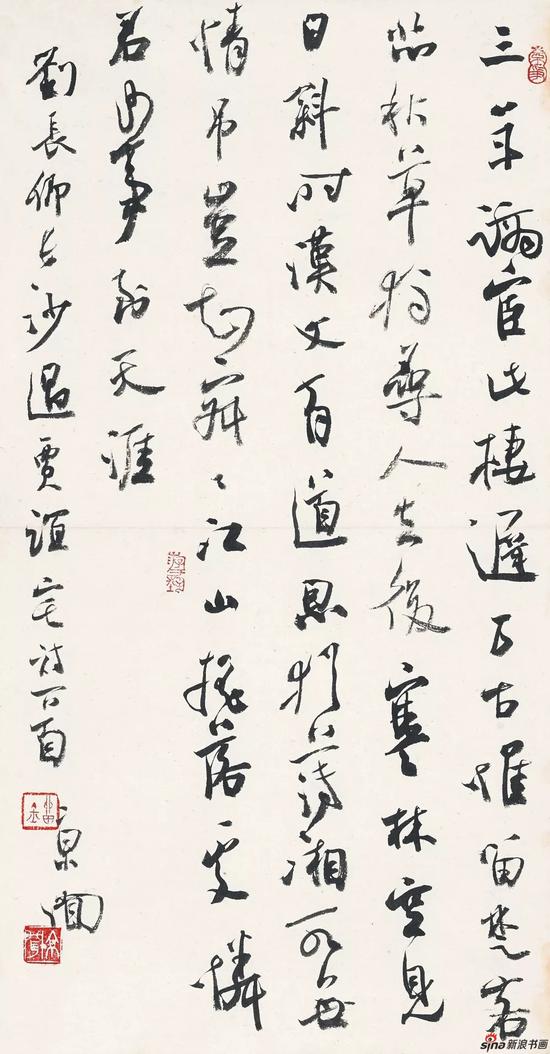 三年謫宦此棲遲万古惟留楚客
悲秋草獨尋人去後寒林空見
日斜時漢文有道恩猶薄湘水無
情吊豈知寂〻江山搖落處憐
君何事到天涯
劉長卿長沙過賈誼宅詩一首
sina新浪书画